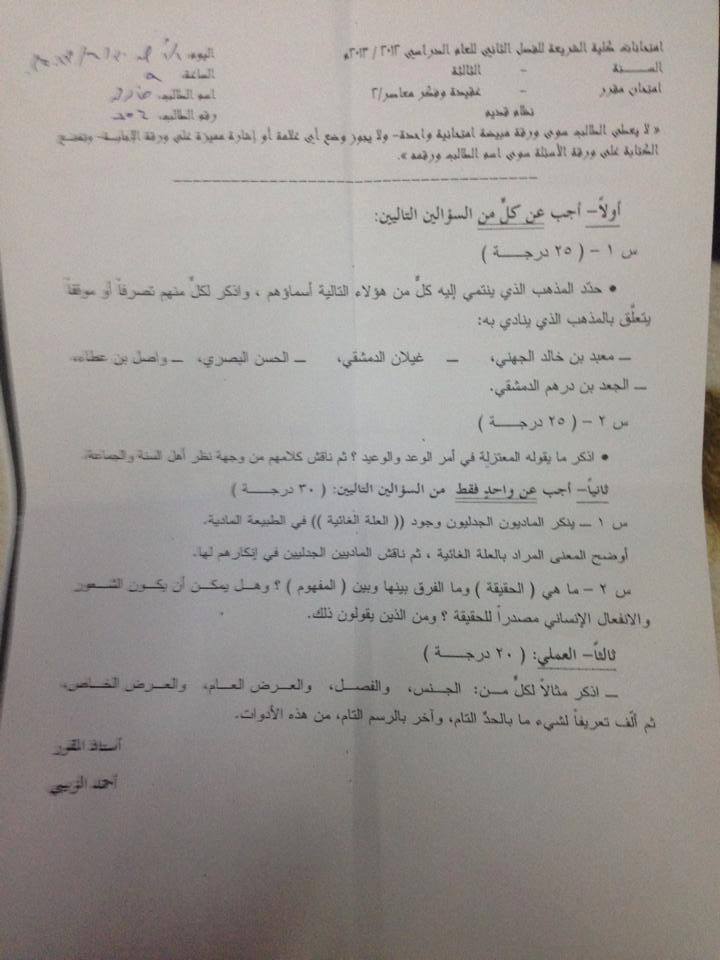 امتحانات كلية الشريعة للفصل الثاني للعام الدراسي ٢٠١٢ / ٢٠١٣م اليوم:
السـنة - الثالثة الساعة: ٩
امتحان مقرر - عقيدة وفكر معاصر/٢ اسم الطالب:
نظام قديم رقم الطالب:
« لا يعطى الطالب سوى ورقة مبيضة امتحانية واحدة- ولا يجوز وضع أي علامة أو إشارة مميزة على ورقة الإجابة- وتمنع
الكتابة على ورقة الأسئلة سوى اسم الطالب ورقمه ».
أولاً- أجب عن كلٍّ من السؤالين التاليين:
س ١ - ( ٢٥ درجـــة )
• حدّد المذهب الذي ينتمي إليه كلٌّ من هؤلاء التالية أسماؤهم ، واذكر لكلٍّ منهم تصرفاً أو موقفاً
يتعلّق بالمذهب الذي ينادي به:
ـ معبد بن خالد الجهني، ـ غيلان الدمشقي، ـ الحسن البصري، ـ واصل بن عطاء،
ـ الجعد بن درهم الدمشقي.
س ٢ - ( ٢٥ درجـــة )
• اذكر ما يقوله المعتزلة في أمر الوعد والوعيد ؟ ثم ناقش كلامهم من وجهة نظر أهل السنة والجماعة.
ثانياً- أجب عن واحدٍ فقط من السؤالين التاليين: ( ٣٠ درجـــة )
س ١ ـ ينكر الماديون الجدليون وجود (( العلة الغائية )) في الطبيعة المادية.
أوضح المعنى المراد بالعلة الغائية ، ثم ناقش الماديين الجدليين في إنكارهم لها.
س ٢ - ما هي ( الحقيقة ) وما الفرق بينها وبين ( المفهوم ) ؟ وهل يمكن أن يكون الشعور
والانفعال الإنساني مصدراً للحقيقة ؟ ومن الذين يقولون ذلك.
ثالثاً- العملي: ( ٢٠ درجـــة )
ـ اذكر مثالاً لكلٍّ من: الجنس، والفصل، والعرض العام، والعرض الخاص،
ثم ألّف تعريفاً لشيء ما بالحدّ التام، وآخر بالرسم التام، من هذه الأدوات.
أستاذ المقرر